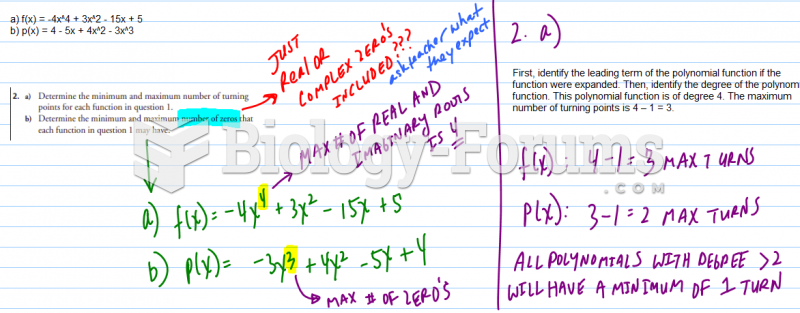 a) f(x) = -4x^4 + 3x^2 - 15x + 5
b) p(x) = 4 - 5x + 4x^2 - 3x^3
JUST
REAL OR
COMPLEX ZERO'S
INCLUDED???
ask teacher what
they expect
2. a) Determine the minimum and maximum number of turning
points for each function in question 1.
b) Determine the minimum and maximum number of zeros that
each function in question 1 may have.
MAX # OF REAL AND
IMAGINARY ROOTS
IS 4
a) f(x) = -4x^4 + 3x² - 15x + 5
b) p(x) = -3x^3 + 4x² - 5x + 4
MAX # OF ZERO'S
2. a)
First, identify the leading term of the polynomial function if the
function were expanded. Then, identify the degree of the polynom
function. This polynomial function is of degree 4. The maximum
number of turning points is 4 – 1 = 3.
f(x): 4-1=3 MAX TURNS
P(x): 3-1=2 MAX TURNS
ALL POLYNOMIALS WITH DEGREE >2
WILL HAVE A MINIMUM OF 1 TURN
Biology-Forums
.COM